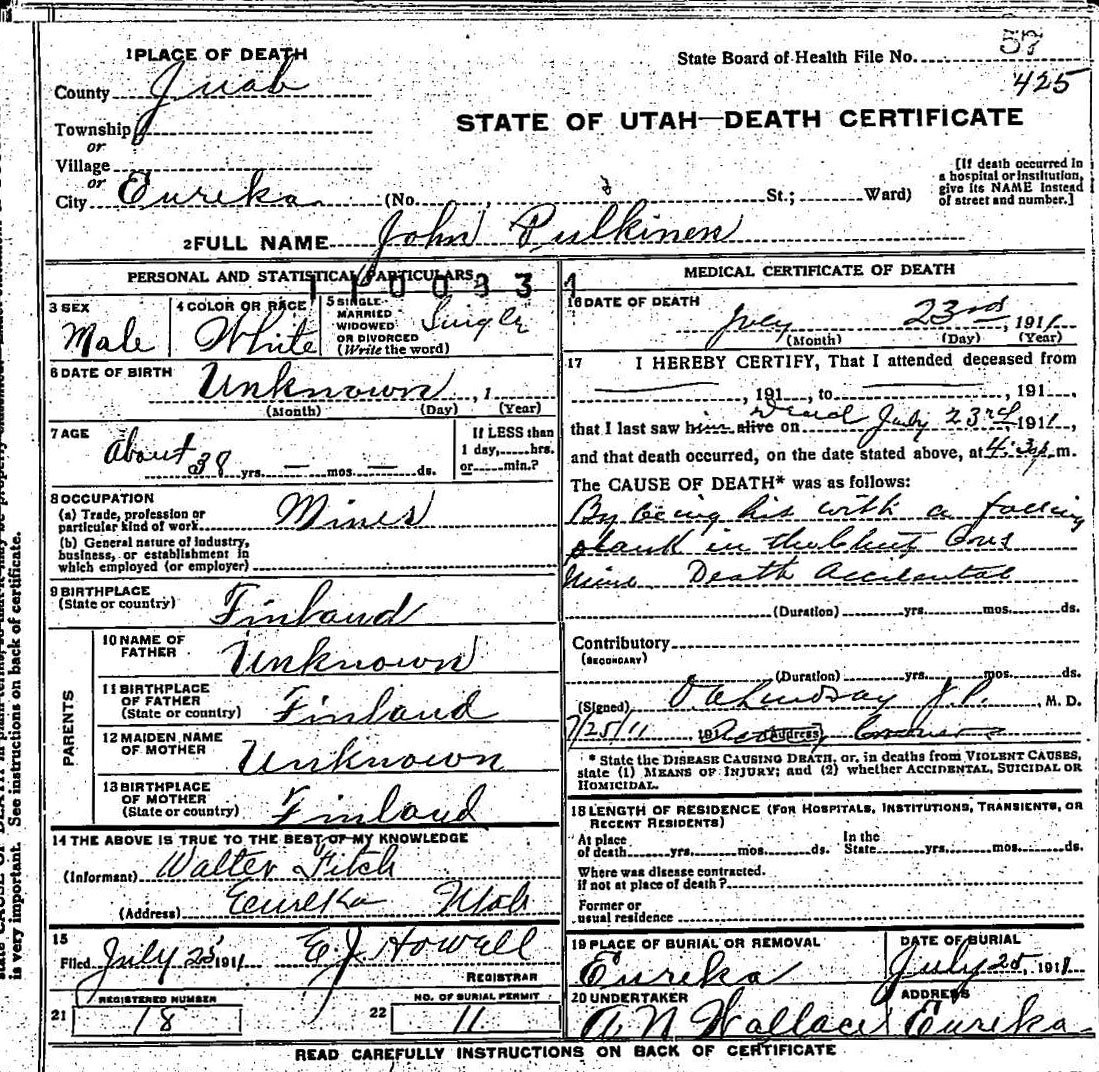 1 PLACE OF DEATH
State Board of Health File No. 57
425
County Juab
Township
or
Village
or
City Eureka (No. , St.; Ward)
STATE OF UTAH—DEATH CERTIFICATE
[If death occurred in
a hospital or institution,
give its NAME instead
of street and number.]
2 FULL NAME John Pulkinen
PERSONAL AND STATISTICAL PARTICULARS
3 SEX
Male
4 COLOR OR RACE
White
5 SINGLE
MARRIED
WIDOWED
OR DIVORCED
(Write the word)
Single
6 DATE OF BIRTH
Unknown , 1
(Month) (Day) (Year)
7 AGE
About 38 yrs. — mos. — ds.
If LESS than
1 day, hrs.
or min.?
8 OCCUPATION
(a) Trade, profession or
particular kind of work
Miner
(b) General nature of industry,
business, or establishment in
which employed (or employer)
9 BIRTHPLACE
(State or country)
Finland
PARENTS
10 NAME OF
FATHER
Unknown
11 BIRTHPLACE
OF FATHER
(State or country)
Finland
12 MAIDEN NAME
OF MOTHER
Unknown
13 BIRTHPLACE
OF MOTHER
(State or country)
Finland
14 THE ABOVE IS TRUE TO THE BEST OF MY KNOWLEDGE
(Informant) Walter Fitch
(Address) Eureka Utah
15
Filed July 25 1911 E. J. Howell
REGISTRAR
REGISTERED NUMBER
21 18
NO. OF BURIAL PERMIT
22 11
MEDICAL CERTIFICATE OF DEATH
16 DATE OF DEATH
July 23rd , 1911
(Month) (Day) (Year)
17 I HEREBY CERTIFY, That I attended deceased from
, 191 , to , 191 ,
that I last saw him alive on Dead July 23rd 1911,
and that death occurred, on the date stated above, at 4:30p m.
The CAUSE OF DEATH* was as follows:
By being his with a falling
plank in the Chief Cons
Mine Death Accidental
(Duration) yrs. mos. ds.
Contributory
(SECONDARY)
(Duration) yrs. mos. ds.
(Signed) Lindsay J.P. , M. D.
7/25/11 191 (Address)
* State the DISEASE CAUSING DEATH, or, in deaths from VIOLENT CAUSES,
state (1) MEANS OF INJURY; and (2) whether ACCIDENTAL, SUICIDAL OR
HOMICIDAL.
18 LENGTH OF RESIDENCE (FOR HOSPITALS, INSTITUTIONS, TRANSIENTS, OR
RECENT RESIDENTS)
At place
of death yrs. mos. ds.
In the
State yrs. mos. ds.
Where was disease contracted.
if not at place of death?
Former or
usual residence
19 PLACE OF BURIAL OR REMOVAL
Eureka
DATE OF BURIAL
July 25, 1911
20 UNDERTAKER
A N Wallace
ADDRESS
Eureka
READ CAREFULLY INSTRUCTIONS ON BACK OF CERTIFICATE
is very important. See instructions on back of certificate.